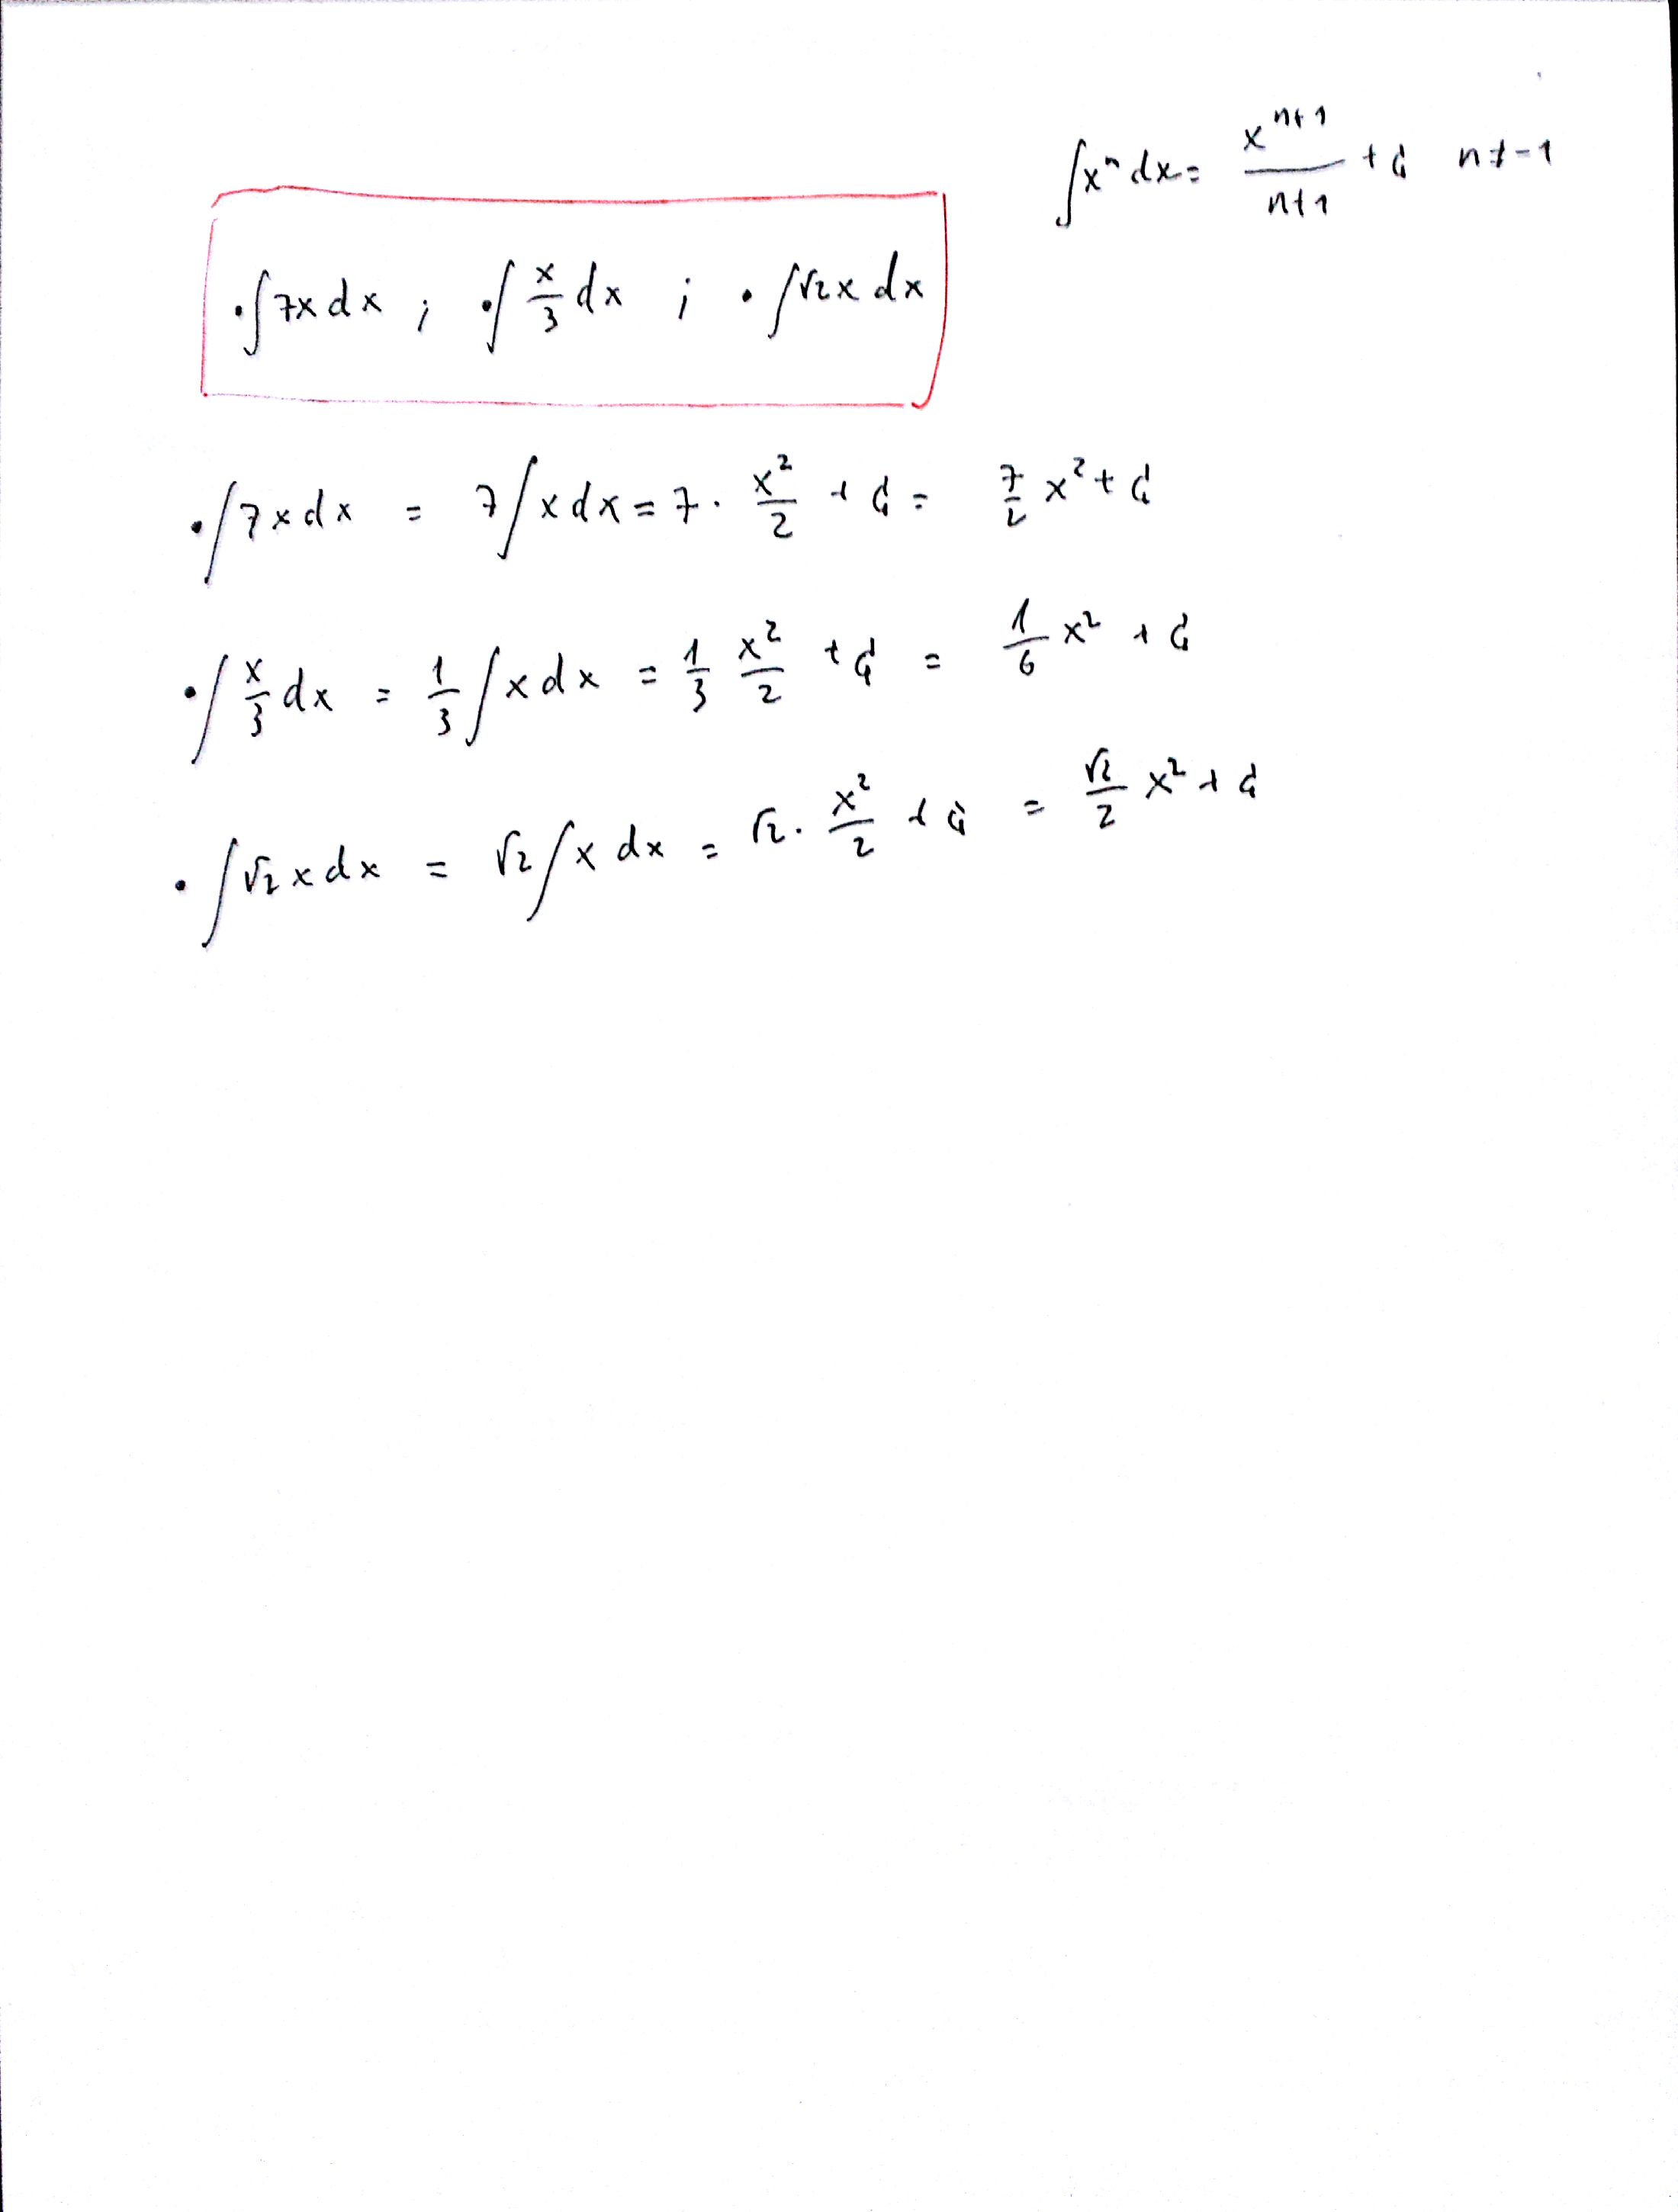 ∫xⁿ dx = xⁿ⁺¹/(n+1) + C n ≠ -1
• ∫7x dx ; • ∫x/3 dx ; • ∫√2 x dx
• ∫7x dx = 7∫x dx = 7 · x²/2 + C = 7/2 x² + C
• ∫x/3 dx = 1/3 ∫x dx = 1/3 x²/2 + C = 1/6 x² + C
• ∫√2 x dx = √2 ∫x dx = √2 · x²/2 + C = √2/2 x² + C